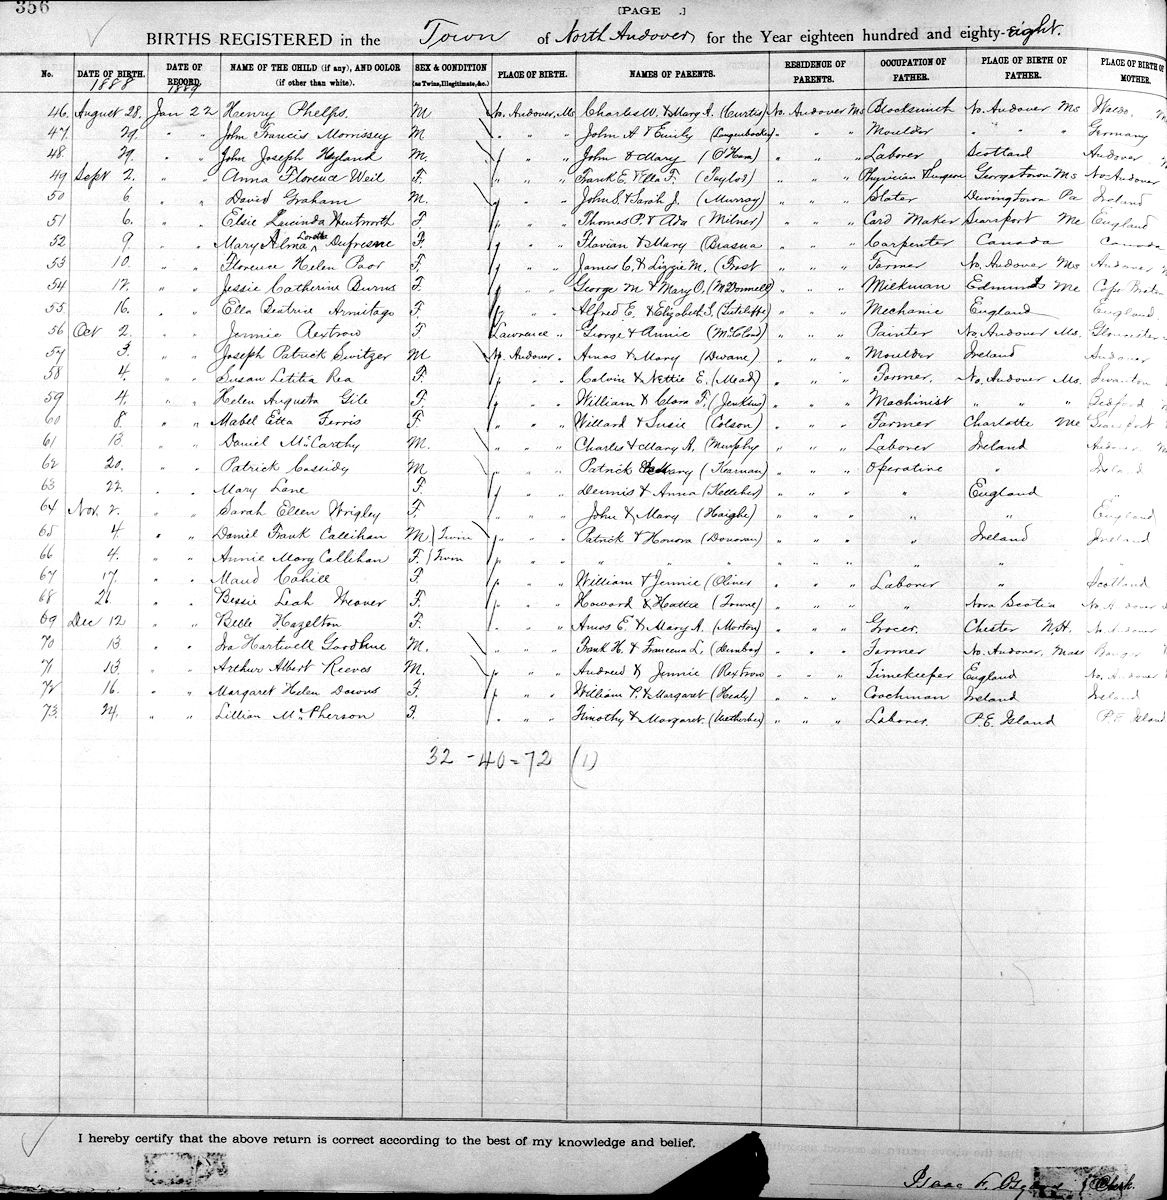 356
[PAGE .]
BIRTHS REGISTERED in the Town of North Andover for the Year eighteen hundred and eighty-eight.
No. DATE OF BIRTH. 1888 DATE OF RECORD. 1889 NAME OF THE CHILD (if any), AND COLOR (if other than white). SEX & CONDITION (as Twins, Illegitimate, &c.) PLACE OF BIRTH. NAMES OF PARENTS. RESIDENCE OF PARENTS. OCCUPATION OF FATHER. PLACE OF BIRTH OF FATHER. PLACE OF BIRTH OF MOTHER.
46. August 28. Jan 22 Henry Phelps. M No. Andover, Ms. Charles W. & Mary A. (Curtis) No. Andover Ms Blacksmith No. Andover Ms Waldo,
47. 29. " " John Francis Morrissey M " " " John A & Emily " " " Moulder " " " Germany
48. 29. " " John Joseph Hyland M. " " " John & Mary (O'Hara) " " " Laborer Scotland Andover
49 Sept 2. " " Anna Florence Weil F. " " " Frank E. & Ella F. (Taylor) " " " Physician & Surgeon Georgetown Ms No. Andover
50 6 " " David Graham M. " " " John S. & Sarah J. (Murray) " " " Slater Downingtown Pa Ireland
51 6. " " Elsie Lucinda Wentworth F " " " Thomas P. & Ada (Milner) " " " Card Maker Searsport Me England
52 9 " " Mary Alma Loretta Dufresne F. " " " Flavian & Mary (Brasua " " " Carpenter Canada Canada
53 10. " " Florence Helen Poor F. " " " James C. & Lizzie M. (Frost " " " Farmer No. Andover Ms Andover
54 12. " " Jessie Catherine Burns F. " " " George M & Mary O. (McDonnell) " " " Milkman Edmunds Me Cape Breton
55 16. " " Ella Beatrice Armitage F. " " " Alfred E. & Elizabeth S. (Sutcliffe) " " " Mechanic England England
56 Oct 2. " " Jennie Rextrow F Lawrence " George & Annie " " " Painter No. Andover Ms. Gloucester
57 3. " " Joseph Patrick Switzer M No. Andover " Amos & Mary (Dwane) " " " Moulder Ireland Andover
58 4. " " Susan Letitia Rea F. " " " Calvin & Nettie E. (Mead) " " " Farmer. No. Andover Ms. Swanton
59 4. " " Helen Augusta Gile F. " " " William & Clara F. (Jenkins) " " " Machinist " " " Bedford
60 8. " " Mabel Etta Ferris F " " " Willard & Susie (Colson) " " " Farmer Charlotte Me Searsport
61 13. " " Daniel McCarthy M. " " " Charles & Mary A. (Murphy " " " Laborer Ireland Andover
62 20. " " Patrick Cassidy M " " " Patrick & Mary (Kearnan) " " " Operative " Ireland
63 22. " " Mary Lane F. " " " Dennis & Anna (Kelleher) " " " " England "
64 Nov. 2. " " Sarah Ellen Wrigley F. " " " John & Mary (Haighe) " " " " " England
65 4. " " Daniel Frank Callihan M. } Twin " " " Patrick & Honora (Donovan) " " " " Ireland Ireland
66 4. " " Annie Mary Callihan F. } Twin " " " " " " " " " " " "
67 17. " " Maud Cahill F. " " " William & Jennie (Oliver " " " Laborer " Scotland
68 26. " " Bessie Leah Weaver F. " " " Howard & Hattie (Towne) " " " " Nova Scotia No. Andover
69 Dec 12 " " Belle Hazelton F. " " " Amos E. & Mary A. (Morton) " " " Grocer. Chester N.H. No. Andover
70 13. " " Ira Hartwell Goodhue M. " " " Frank H. & Francena L. (Dunbar) " " " Farmer No. Andover, Mass Bangor
71 13. " " Arthur Albert Reeves M. " " " Andrew & Jennie (Rextrow " " " Timekeeper England No. Andover
72 16. " " Margaret Helen Downs F. " " " William P. & Margaret (Healy) " " " Coachman Ireland Ireland
73. 24. " " Lillian McPherson F. " " " Timothy & Margaret. " " " Laborer. P.E. Island P.E. Island
32 - 40 = 72 (1)
I hereby certify that the above return is correct according to the best of my knowledge and belief.
Isaac F. Osgood Clerk.